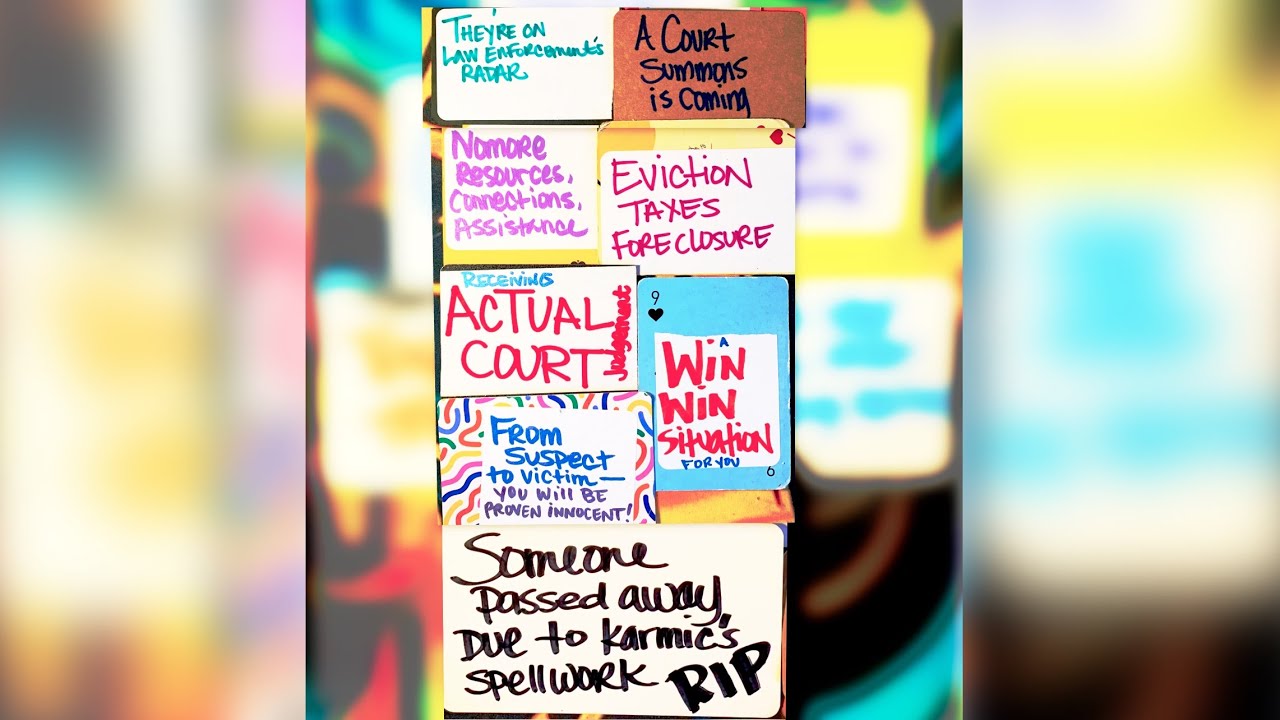 THEY'RE ON
LAW ENFORCEMENT'S
RADAR
A COURT
SUMMONS
is COMING
Nomore
Resources,
Connections,
Assistance
EVICTION
TAXES
FORECLOSURE
RECEIVING
ACTUAL
COURT
Judgement
9
A
WIN
WIN
SITUATION
FOR YOU
9
FROM
SUSPECT
to VICTIM—
YOU WILL BE
PROVEN INNOCENT!
Someone
passed away
Due to Karmic's
spellwork
RIP